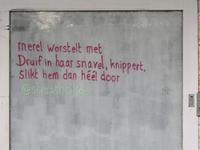 merel worstelt met
Druif in haar snavel, knippert,
slikt hem dan héél door